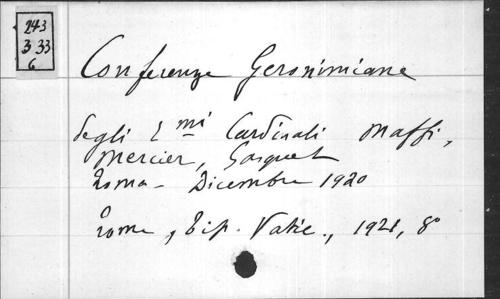 243
B 33
6
Conferenze Geronimiane
degli E.mi Cardinali Maffi,
Mercier, Gasquet
Roma - Dicembre 1920
Roma, Tip. Vatic., 1921, 8°